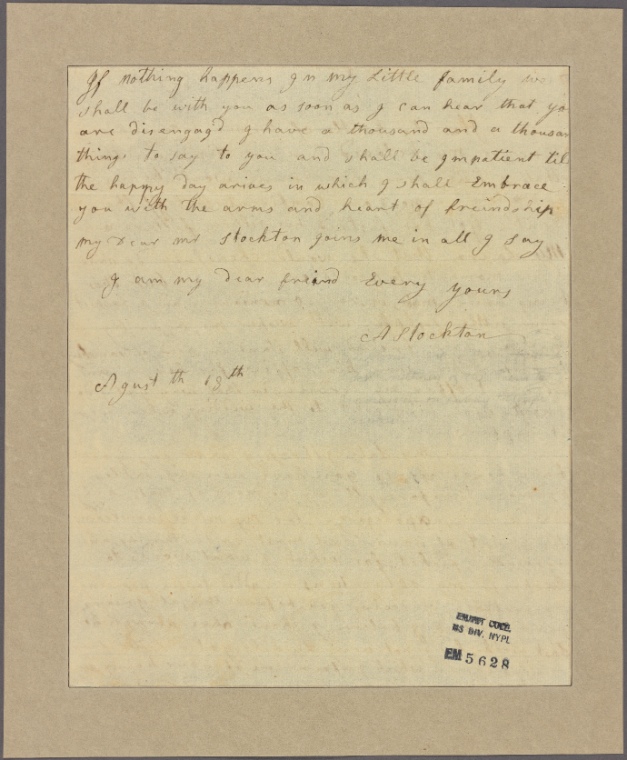 If nothing happens In my Little family we
shall be with you as soon as I can hear that yo
are disengagd I have a thousand and a thousan
things to say to you and shall be Impatient til
the happy day arives in which I shall Embrace
you with the arms and heart of freindship
my Dear mr Stockton joins me in all I say
I am my dear freind Every yours
A Stockton
Agust th 18th
EMMET COLL.
MS DIV. NYPL
EM 5628